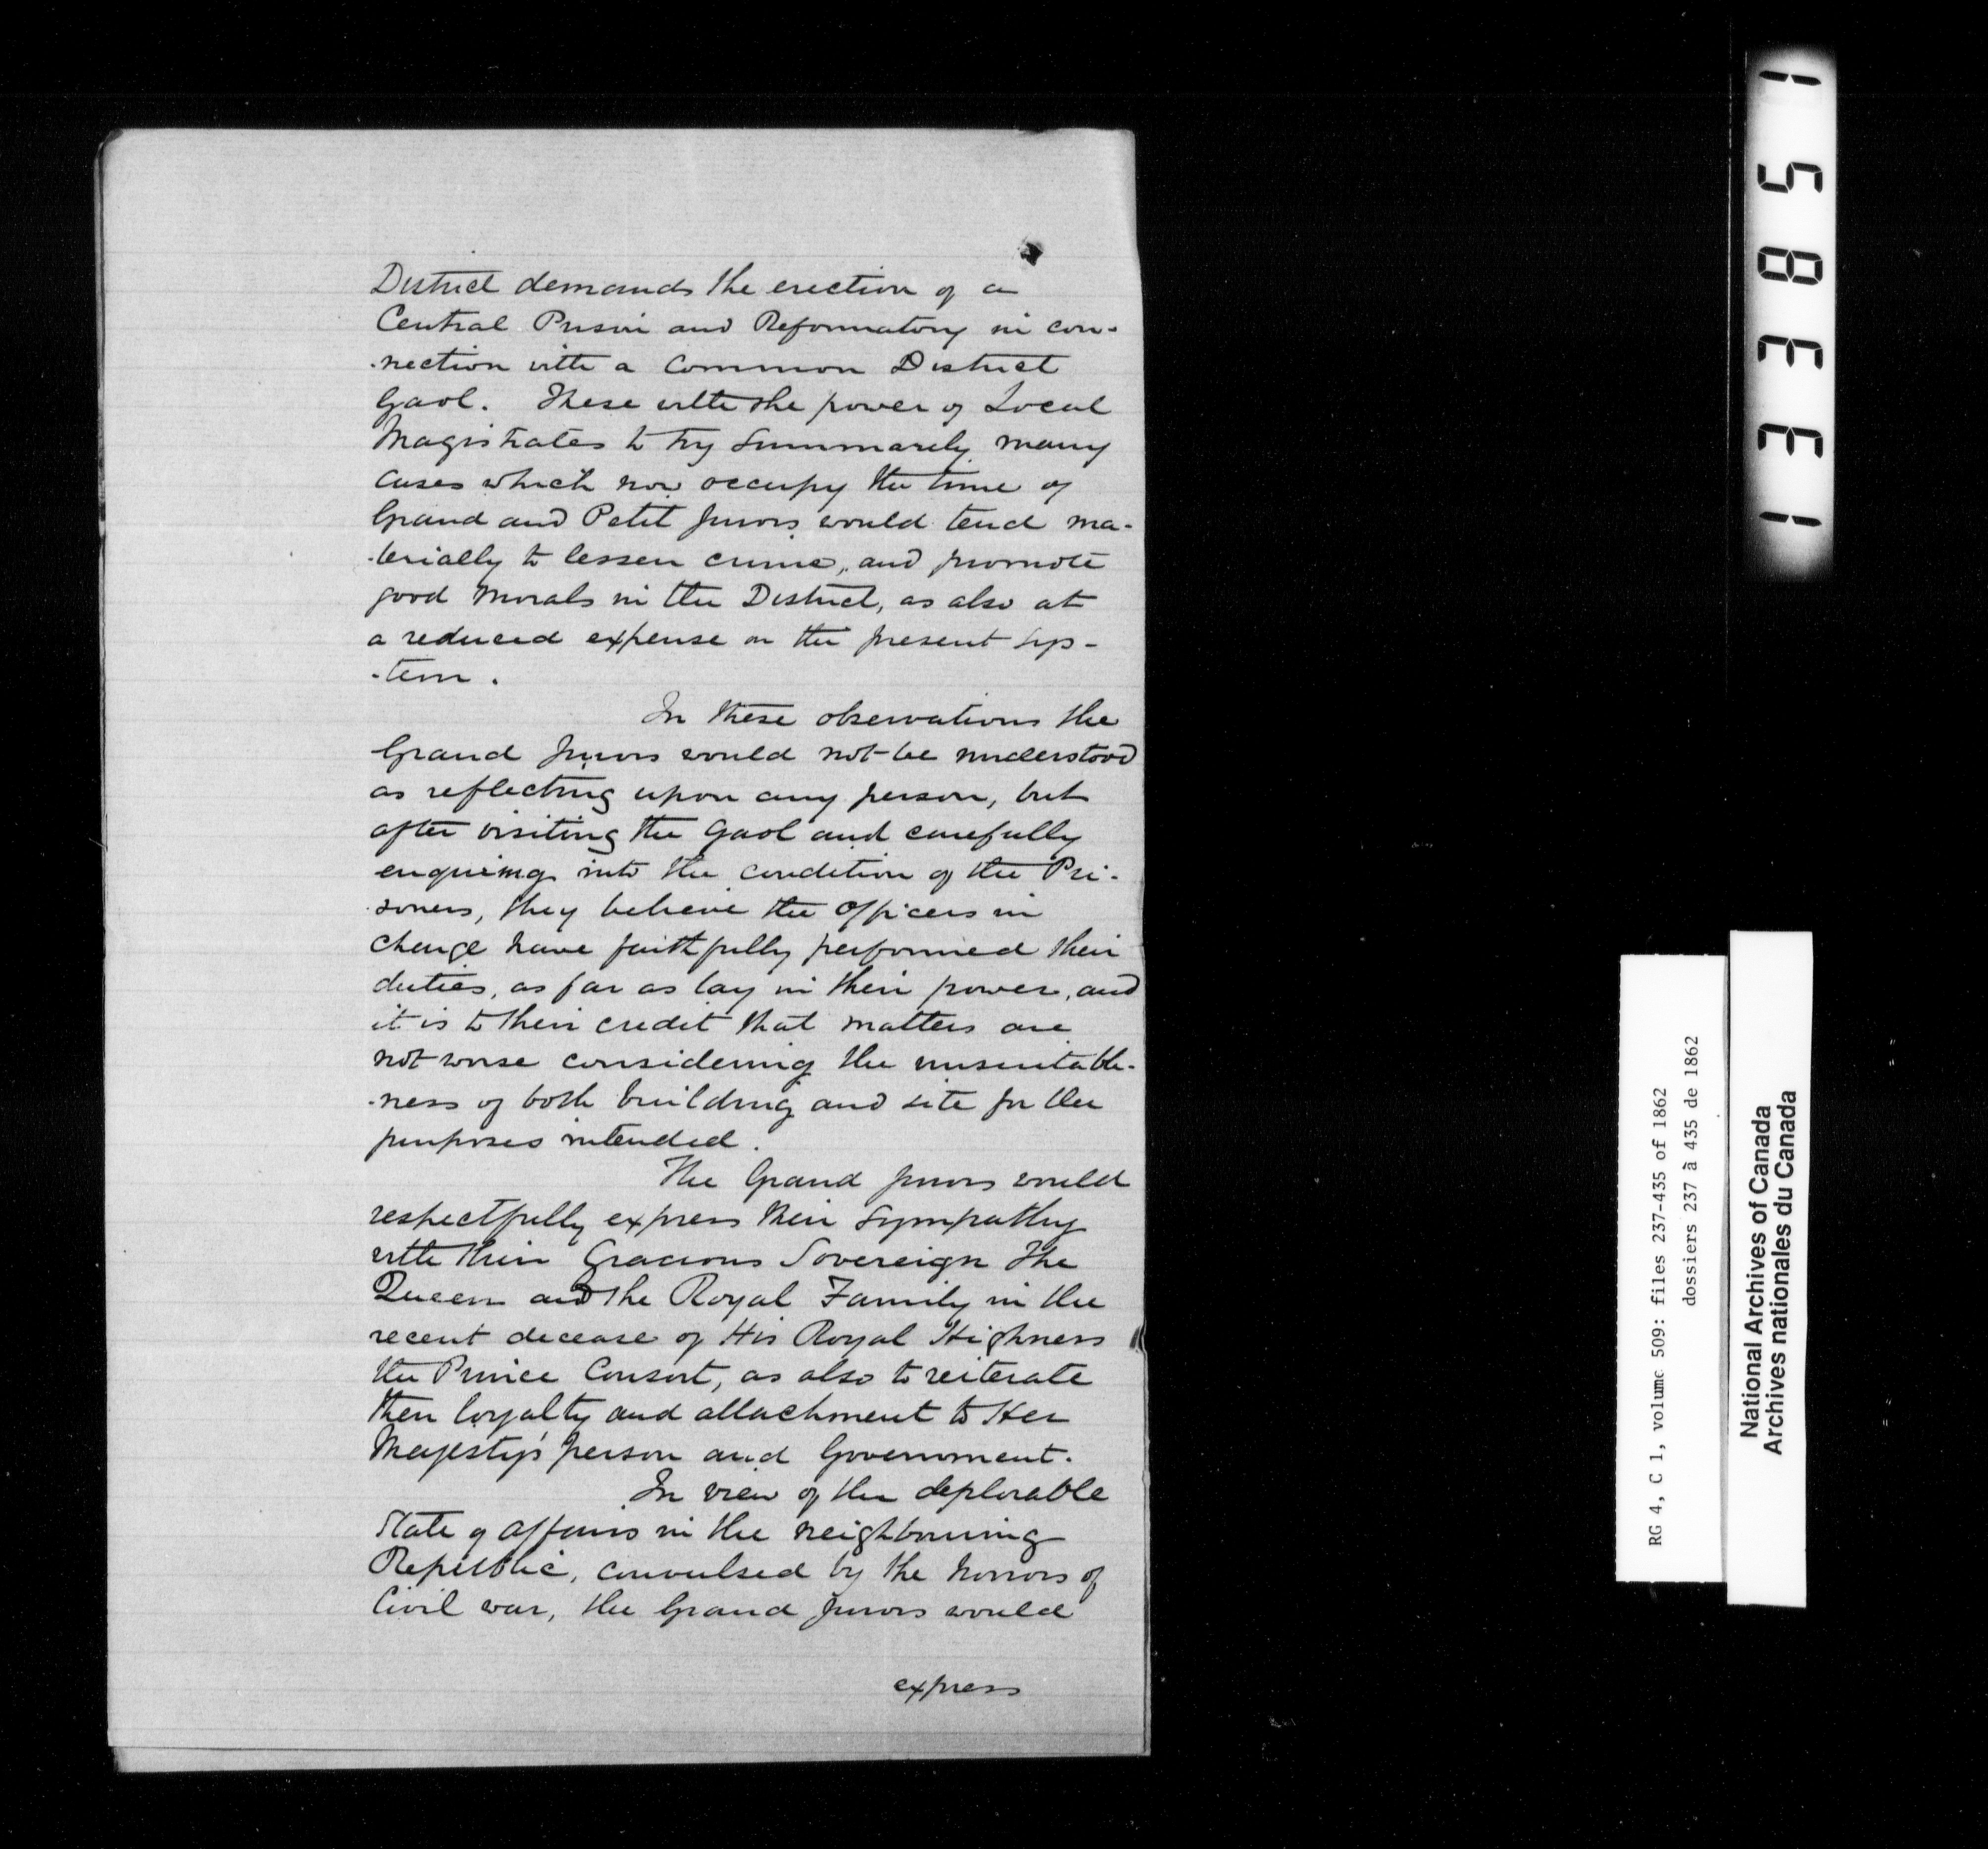 District demands the erection of a
Central Prison and Reformatory in con-
-nection with a Common District
Gaol. These with the power of Local
Magistrates to try Summarily many
cases which now occupy the time of
Grand and Petit Jurors would tend ma-
-terially to lessen crime, and promote
good Morals in the District, as also at
a reduced expense on the present Sys-
-tem.
In these observations the
Grand Jurors would not be understood
as reflecting upon any person, but
after visiting the Gaol and carefully
enquiring into the condition of the Pri-
-soners, they believe the Officers in
charge have faithfully performed their
duties, as far as lay in their power, and
it is to their credit that matters are
not worse considering the unsuitable-
-ness of both building and site for the
purposes intended.
The Grand Jurors would
respectfully express their Sympathy
with their Gracious Sovereign The
Queen and the Royal Family in the
recent decease of His Royal Highness
the Prince Consort, as also to reiterate
their loyalty and attachment to Her
Majesty's person and Government.
In view of the deplorable
State of affairs in the neighbouring
Republic, convulsed by the horrors of
Civil war, the Grand Jurors would
express
133851
RG 4, C 1, volume 509: files 237-435 of 1862
dossiers 237 à 435 de 1862
National Archives of Canada
Archives nationales du Canada